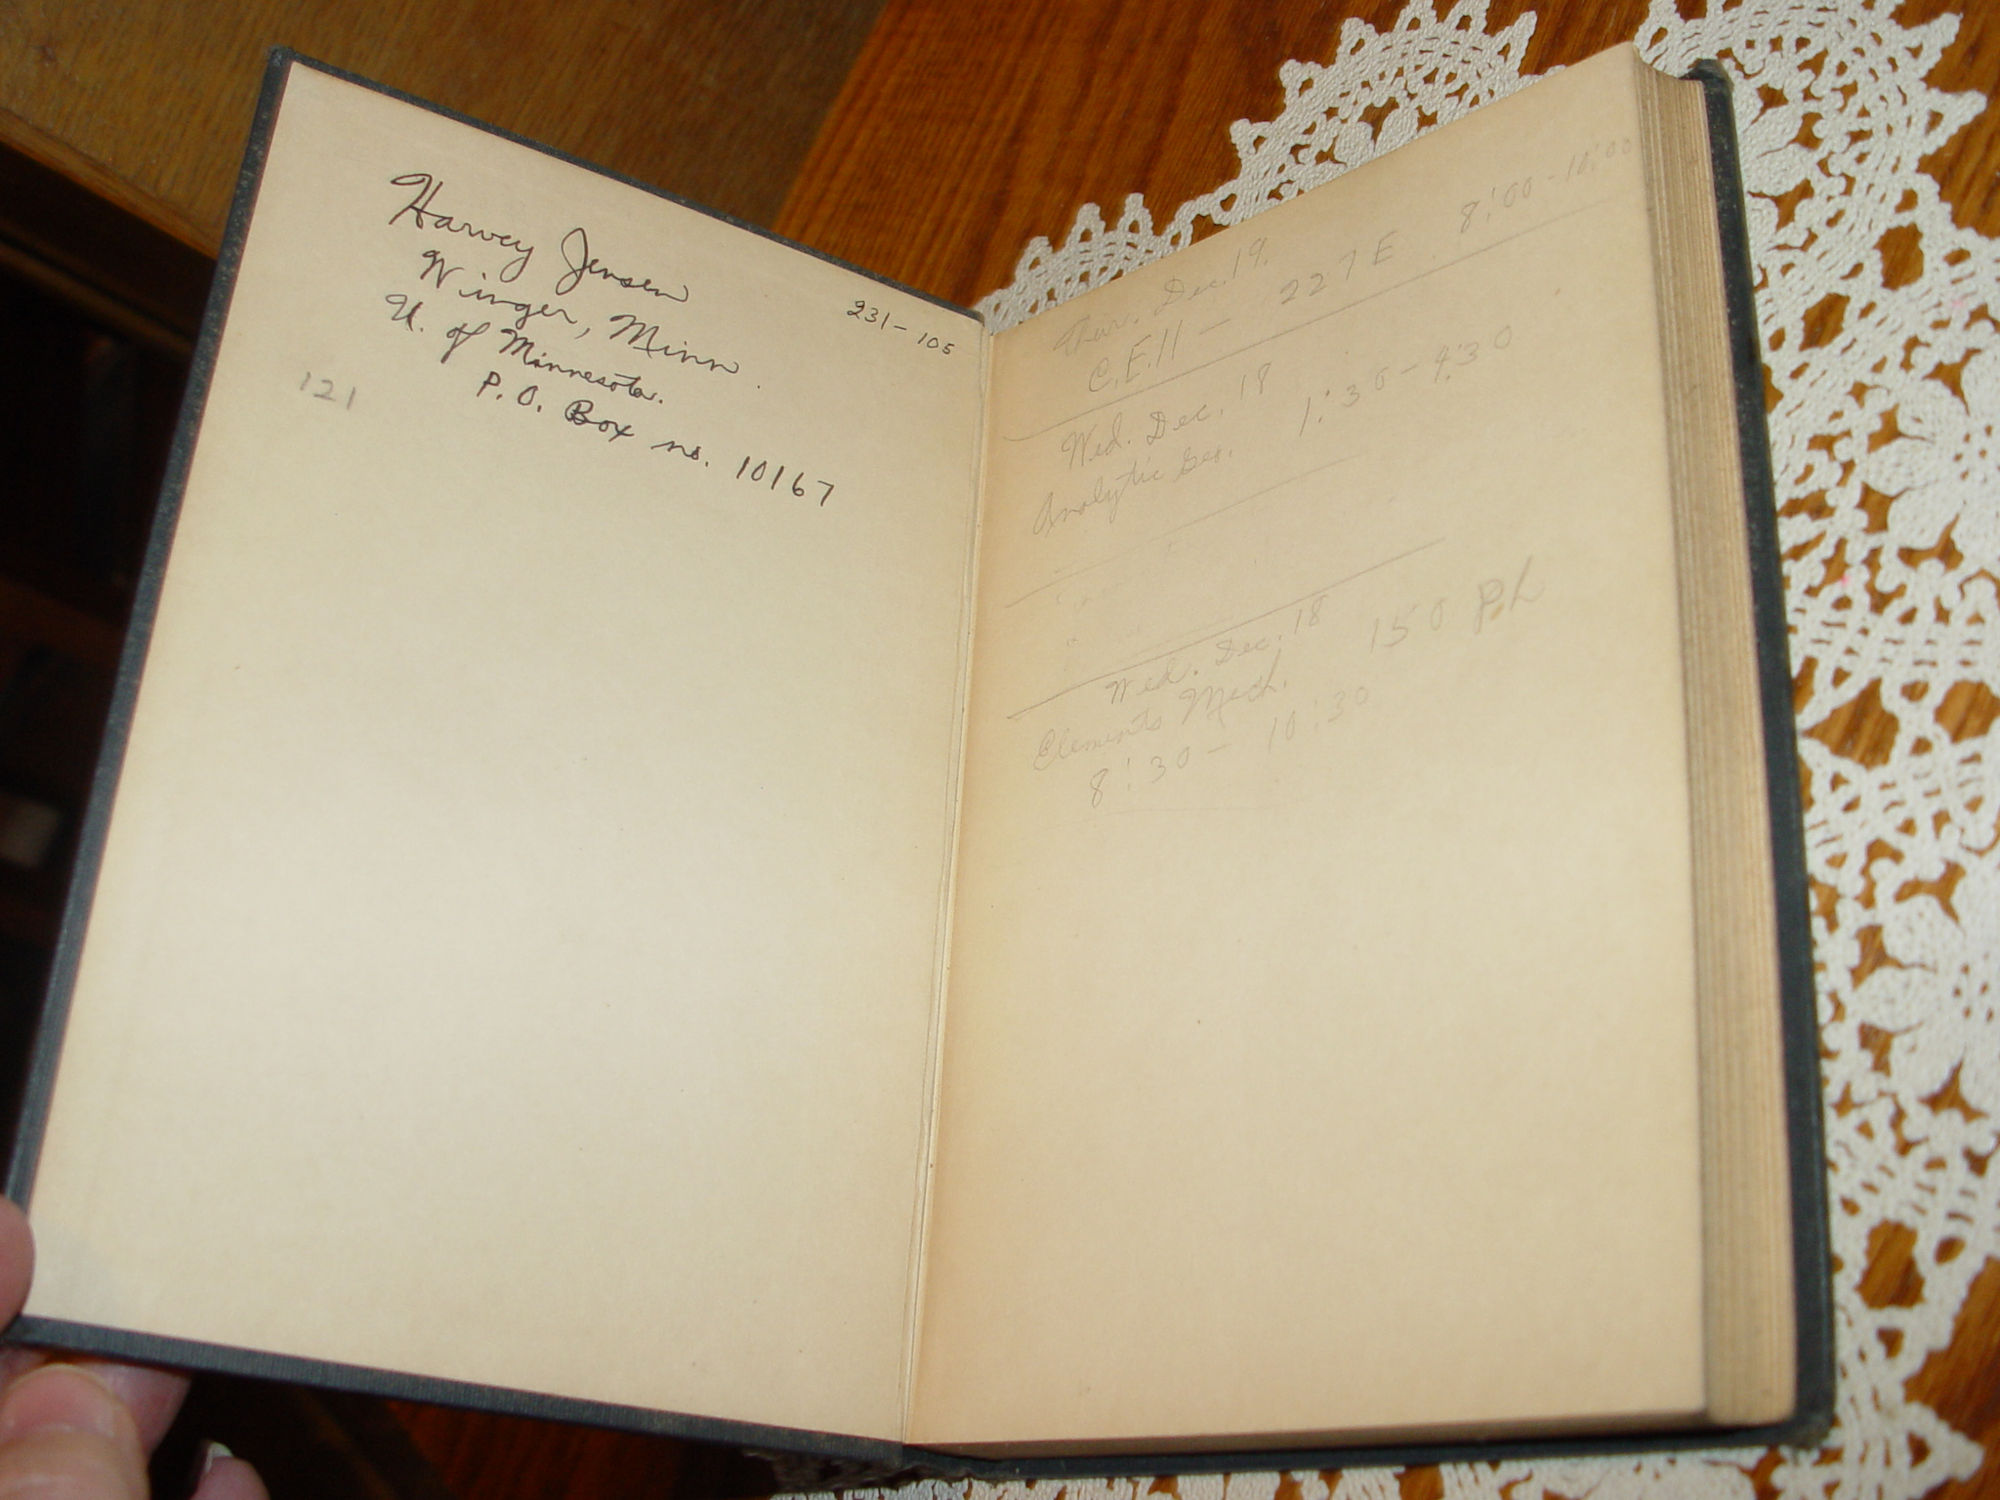 Harvey Jensen
Winger, Minn.
U. of Minnesota.
P. O. Box no. 10167
231-105
121
Thur. Dec. 19.
C.E. 11 - 227 E. 8:00-10:00
Wed. Dec. 18
Analytic Geo. 1:30-4:30
Wed. Dec. 18
Elements Mech. 150 Ph
8:30 - 10:30